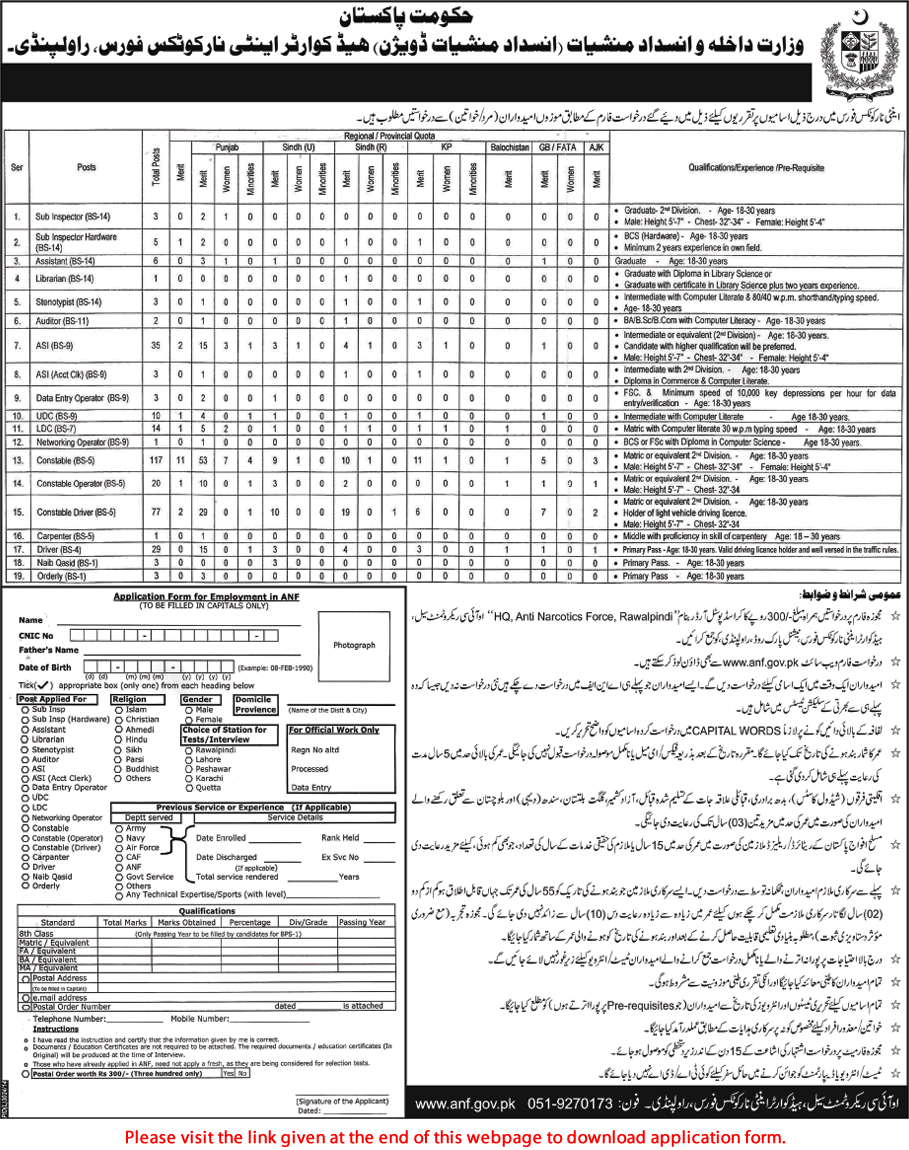 حکومت پاکستان
وزارت داخلہ و انسداد منشیات (انسداد منشیات ڈویژن) ہیڈ کوارٹر اینٹی نارکوٹکس فورس، راولپنڈی۔
اینٹی نارکوٹکس فورس میں درج ذیل اسامیوں پر تقرریوں کیلئے ذیل میں دیئے گئے درخواست فارم کے مطابق موزوں امیدواران (مرد/خواتین) سے درخواستیں مطلوب ہیں۔
Regional / Provincial Quota
Punjab Sindh (U) Sindh (R) KP Balochistan GB / FATA AJK
Ser Posts Total Posts Merit Merit Women Minorities Merit Women Minorities Merit Women Minorities Merit Women Minorities Merit Merit Women Merit Qualifications/Experience /Pre-Requisite
1. Sub Inspector (BS-14) 3 0 2 1 0 0 0 0 0 0 0 0 0 0 0 0 0 0 • Graduato- 2nd Division. - Age- 18-30 years
• Male: Height 5'-7" - Chest- 32"-34" - Female: Height 5'-4"
2. Sub Inspector Hardware (BS-14) 5 1 2 0 0 0 0 0 1 0 0 1 0 0 0 0 0 0 • BCS (Hardware) - Age- 18-30 years
• Minimum 2 years experience in own field.
3. Assistant (BS-14) 6 0 3 1 0 1 0 0 0 0 0 0 0 0 0 1 0 0 Graduate - Age: 18-30 years
4 Librarian (BS-14) 1 0 0 0 0 0 0 0 1 0 0 0 0 0 0 0 0 0 • Graduate with Diploma in Library Science or
• Graduate with certificate in Library Science plus two years experience.
5. Stenotypist (BS-14) 3 0 1 0 0 0 0 0 1 0 0 1 0 0 0 0 0 0 • Intermediate with Computer Literate & 80/40 w.p.m. shorthand/typing speed.
• Age- 18-30 years
6. Auditor (BS-11) 2 0 1 0 0 0 0 0 1 0 0 0 0 0 0 0 0 0 • BA/B.Sc/B.Com with Computer Literacy - Age- 18-30 years
7. ASI (BS-9) 35 2 15 3 1 3 1 0 4 1 0 3 1 0 0 1 0 0 • Intermediate or equivalent (2nd Division) - Age: 18-30 years.
• Candidate with higher qualification will be preferred.
• Male: Height 5'-7" - Chest- 32"-34" - Female: Height 5'-4"
8. ASI (Acct Clk) (BS-9) 3 0 1 0 0 0 0 0 1 0 0 1 0 0 0 0 0 0 • Intermediate with 2nd Division. - Age: 18-30 years
• Diploma in Commerce & Computer Literate.
9. Data Entry Operator (BS-9) 3 0 2 0 0 1 0 0 0 0 0 0 0 0 0 0 0 0 • FSC. & Minimum speed of 10,000 key depressions per hour for data entry/verification - Age: 18-30 years
10. UDC (BS-9) 10 1 4 0 1 1 0 0 1 0 0 1 0 0 0 1 0 0 • Intermediate with Computer Literate - Age: 18-30 years.
11. LDC (BS-7) 14 1 5 2 0 1 0 0 1 0 1 1 1 0 1 0 0 0 • Matric with Computer literate 30 w.p.m typing speed - Age: 18-30 years
12. Networking Operator (BS-9) 1 0 1 0 0 0 0 0 0 0 0 0 0 0 0 0 0 0 • BCS or FSc with Diploma in Computer Science - Age: 18-30 years.
13. Constable (BS-5) 117 11 53 7 4 9 1 0 10 1 0 11 1 0 1 5 0 3 • Matric or equivalent 2nd Division. - Age: 18-30 years
• Male: Height 5'-7" - Chest- 32"-34" - Female: Height 5'-4"
14. Constable Operator (BS-5) 20 1 10 0 1 3 0 0 2 0 0 0 0 0 1 1 0 1 • Matric or equivalent 2nd Division. - Age: 18-30 years
• Male: Height 5'-7" - Chest- 32"-34
15. Constable Driver (BS-5) 77 2 29 0 1 10 0 0 19 0 1 6 0 0 0 7 0 2 • Matric or equivalent 2nd Division - Age: 18-30 years
• Holder of light vehicle driving licence.
• Male: Height 5'-7" - Chest- 32"-34
16. Carpenter (BS-5) 1 0 1 0 0 0 0 0 0 0 0 0 0 0 0 0 0 0 • Middle with proficiency in skill of carpentary Age: 18 – 30 years
17. Driver (BS-4) 29 0 15 0 1 3 0 0 4 0 0 3 0 0 1 1 0 1 • Primary Pass - Age: 18-30 years. Valid driving licence holder and well versed in the traffic rules.
18. Naib Qasid (BS-1) 3 0 0 0 0 3 0 0 0 0 0 0 0 0 0 0 0 0 • Primary Pass. - Age: 18-30 years
19. Orderly (BS-1) 3 0 3 0 0 0 0 0 0 0 0 0 0 0 0 0 0 0 • Primary Pass - Age: 18-30 years
Application Form for Employment in ANF
(TO BE FILLED IN CAPITALS ONLY)
Name
CNIC No
Father's Name
Date of Birth (Example: 08-FEB-1990)
(d) (d) (m) (m) (m) (y) (y) (y) (y)
Photograph
Tick(✓) appropriate box (only one) from each heading below
Post Applied For
Sub Insp
Sub Insp (Hardware)
Assistant
Librarian
Stenotypist
Auditor
ASI
ASI (Acct Clerk)
Data Entry Operator
UDC
LDC
Networking Operator
Constable
Constable (Operator)
Constable (Driver)
Carpanter
Driver
Naib Qasid
Orderly
Religion
Islam
Christian
Ahmedi
Hindu
Sikh
Parsi
Buddhist
Others
Gender
Male
Female
Domicile Provience
(Name of the Distt & City)
Choice of Station for Tests/Interview
Rawalpindi
Lahore
Peshawar
Karachi
Quetta
For Official Work Only
Regn No altd
Processed
Data Entry
Previous Service or Experience (If Applicable)
Deptt served Service Details
Army
Navy
Air Force
CAF
ANF
Govt Service
Others
Date Enrolled Rank Held
Date Discharged Ex Svc No
(If applicable)
Total service rendered Years
Any Technical Expertise/Sports (with level)
Qualifications
Standard Total Marks Marks Obtained Percentage Div/Grade Passing Year
8th Class (Only Passing Year to be filled by candidates for BPS-1)
Matric / Equivalent
FA / Equivalent
BA / Equivalent
MA / Equivalent
Postal Address
(To be filled in Capitals)
e.mail address
Postal Order Number dated is attached
Telephone Number: Mobile Number:
Instructions
I have read the instruction and certify that the information given by me is correct.
Documents / Education Certificates are not required to be attached. The required documents / education certificates (In Original) will be produced at the time of Interview.
Those who have already applied in ANF, need not apply a fresh, as they are being considered for selection tests.
Postal Order worth Rs 300/- (Three hundred only) Yes No
(Signature of the Applicant)
Dated:
PID(L)3024/14
عمومی شرائط و ضوابط:
☆ مجوزہ فارم پر درخواستیں ہمراہ مبلغ -/300 روپے کا کراسڈ پوسٹل آرڈر بنام "HQ, Anti Narcotics Force, Rawalpindi" او آئی سی ریکروٹمنٹ سیل،
ہیڈ کوارٹر اینٹی نارکوٹکس فورس، نیشنل پارک روڈ، راولپنڈی، کو جمع کرائیں۔
☆ درخواست فارم ویب سائٹ www.anf.gov.pk سے بھی ڈاؤن لوڈ کر سکتے ہیں۔
☆ امیدواران ایک وقت میں ایک اسامی کیلئے درخواست دیں گے۔ ایسے امیدواران جو پہلے ہی اے این ایف میں درخواست دے چکے ہیں نئی درخواست نہ دیں جیسا کہ وہ
پہلے ہی سے بھرتی کے سلیکشن ٹیسٹس میں شامل ہیں۔
☆ لفافہ کے بالائی دائیں کونے پر لازماً CAPITAL WORDS میں درخواست کردہ اسامیوں کو واضح تحریر کریں۔
☆ عمر کا شمار بند ہونے کی تاریخ تک کیا جائے گا۔ مقررہ تاریخ کے بعد بذریعہ فیکس/ای میل یا نامکمل موصولہ درخواست قبول نہیں کی جائیگی۔ عمر کی بالائی حد میں 5 سال مدت
کی رعایت پہلے ہی شامل کر دی گئی ہے۔
☆ اقلیتی فرقوں (شیڈول کاسٹس)، بدھ برادری، قبائلی علاقہ جات کے تسلیم شدہ قبائل، آزاد کشمیر، گلگت بلتستان، سندھ (دیہی) اور بلوچستان سے تعلق رکھنے والے
امیدواران کی صورت میں عمر کی حد میں مزید تین (03) سال تک کی رعایت دی جائیگی۔
☆ مسلح افواج پاکستان کے ریٹائرڈ/ریلیزڈ ملازمین کی صورت میں عمر کی حد میں 15 سال یا ملازم کی حقیقی خدمات کے سال کی تعداد، جو بھی کم ہوئی، کیلئے مزید رعایت دی
جائے گی۔
☆ پہلے سے سرکاری ملازم امیدواران محکمانہ توسط سے درخواست دیں۔ ایسے سرکاری ملازمین جو بند ہونے کی تاریخ کو 55 سال کی عمر تک جہاں قابل اطلاق ہو کم از کم دو
(02) سال لگاتار سرکاری ملازمت مکمل کر چکے ہوں کیلئے عمر میں زیادہ سے زیادہ رعایت دس (10) سال سے زائد نہیں دی جائے گی۔ مجوزہ تجربہ (مع ضروری
مؤثر دستاویزی ثبوت) مطلوبہ بنیادی تعلیمی قابلیت حاصل کرنے کے بعد اور بند ہونے کی تاریخ کو ہونے والی عمر کے ساتھ شمار کیا جائیگا۔
☆ درج بالا احتیاجات پر پورا نہ اترنے والے یا نامکمل درخواست جمع کرانے والے امیدواران ٹیسٹ/انٹرویو کیلئے زیر غور نہیں لائے جائیں گے۔
☆ تمام امیدواران کا طبی معائنہ کیا جائیگا اور انکی تقرری طبی موزونیت سے مشروط ہوگی۔
☆ تمام اسامیوں کیلئے تحریری ٹیسٹوں اور انٹرویوز کی تاریخ سے امیدواران (جو Pre-requisites پر پورا اترتے ہوں) کو مطلع کیا جائیگا۔
☆ خواتین/معذور افراد کیلئے مخصوص کوٹہ پر سرکاری ہدایات کے مطابق عملدرآمد کیا جائیگا۔
☆ مجوزہ فارمیٹ پر درخواست اشتہار کی اشاعت کے 15 دن کے اندر زیر دستخطی کو موصول ہو جائے۔
☆ ٹیسٹ/انٹرویو یا ڈیپارٹمنٹ کو جوائن کرنے میں حائل سفر کیلئے کوئی ٹی اے/ڈی اے نہیں دیا جائے گا۔
او آئی سی ریکروٹمنٹ سیل، ہیڈ کوارٹر اینٹی نارکوٹکس فورس، راولپنڈی۔ فون: 051-9270173 www.anf.gov.pk
Please visit the link given at the end of this webpage to download application form.